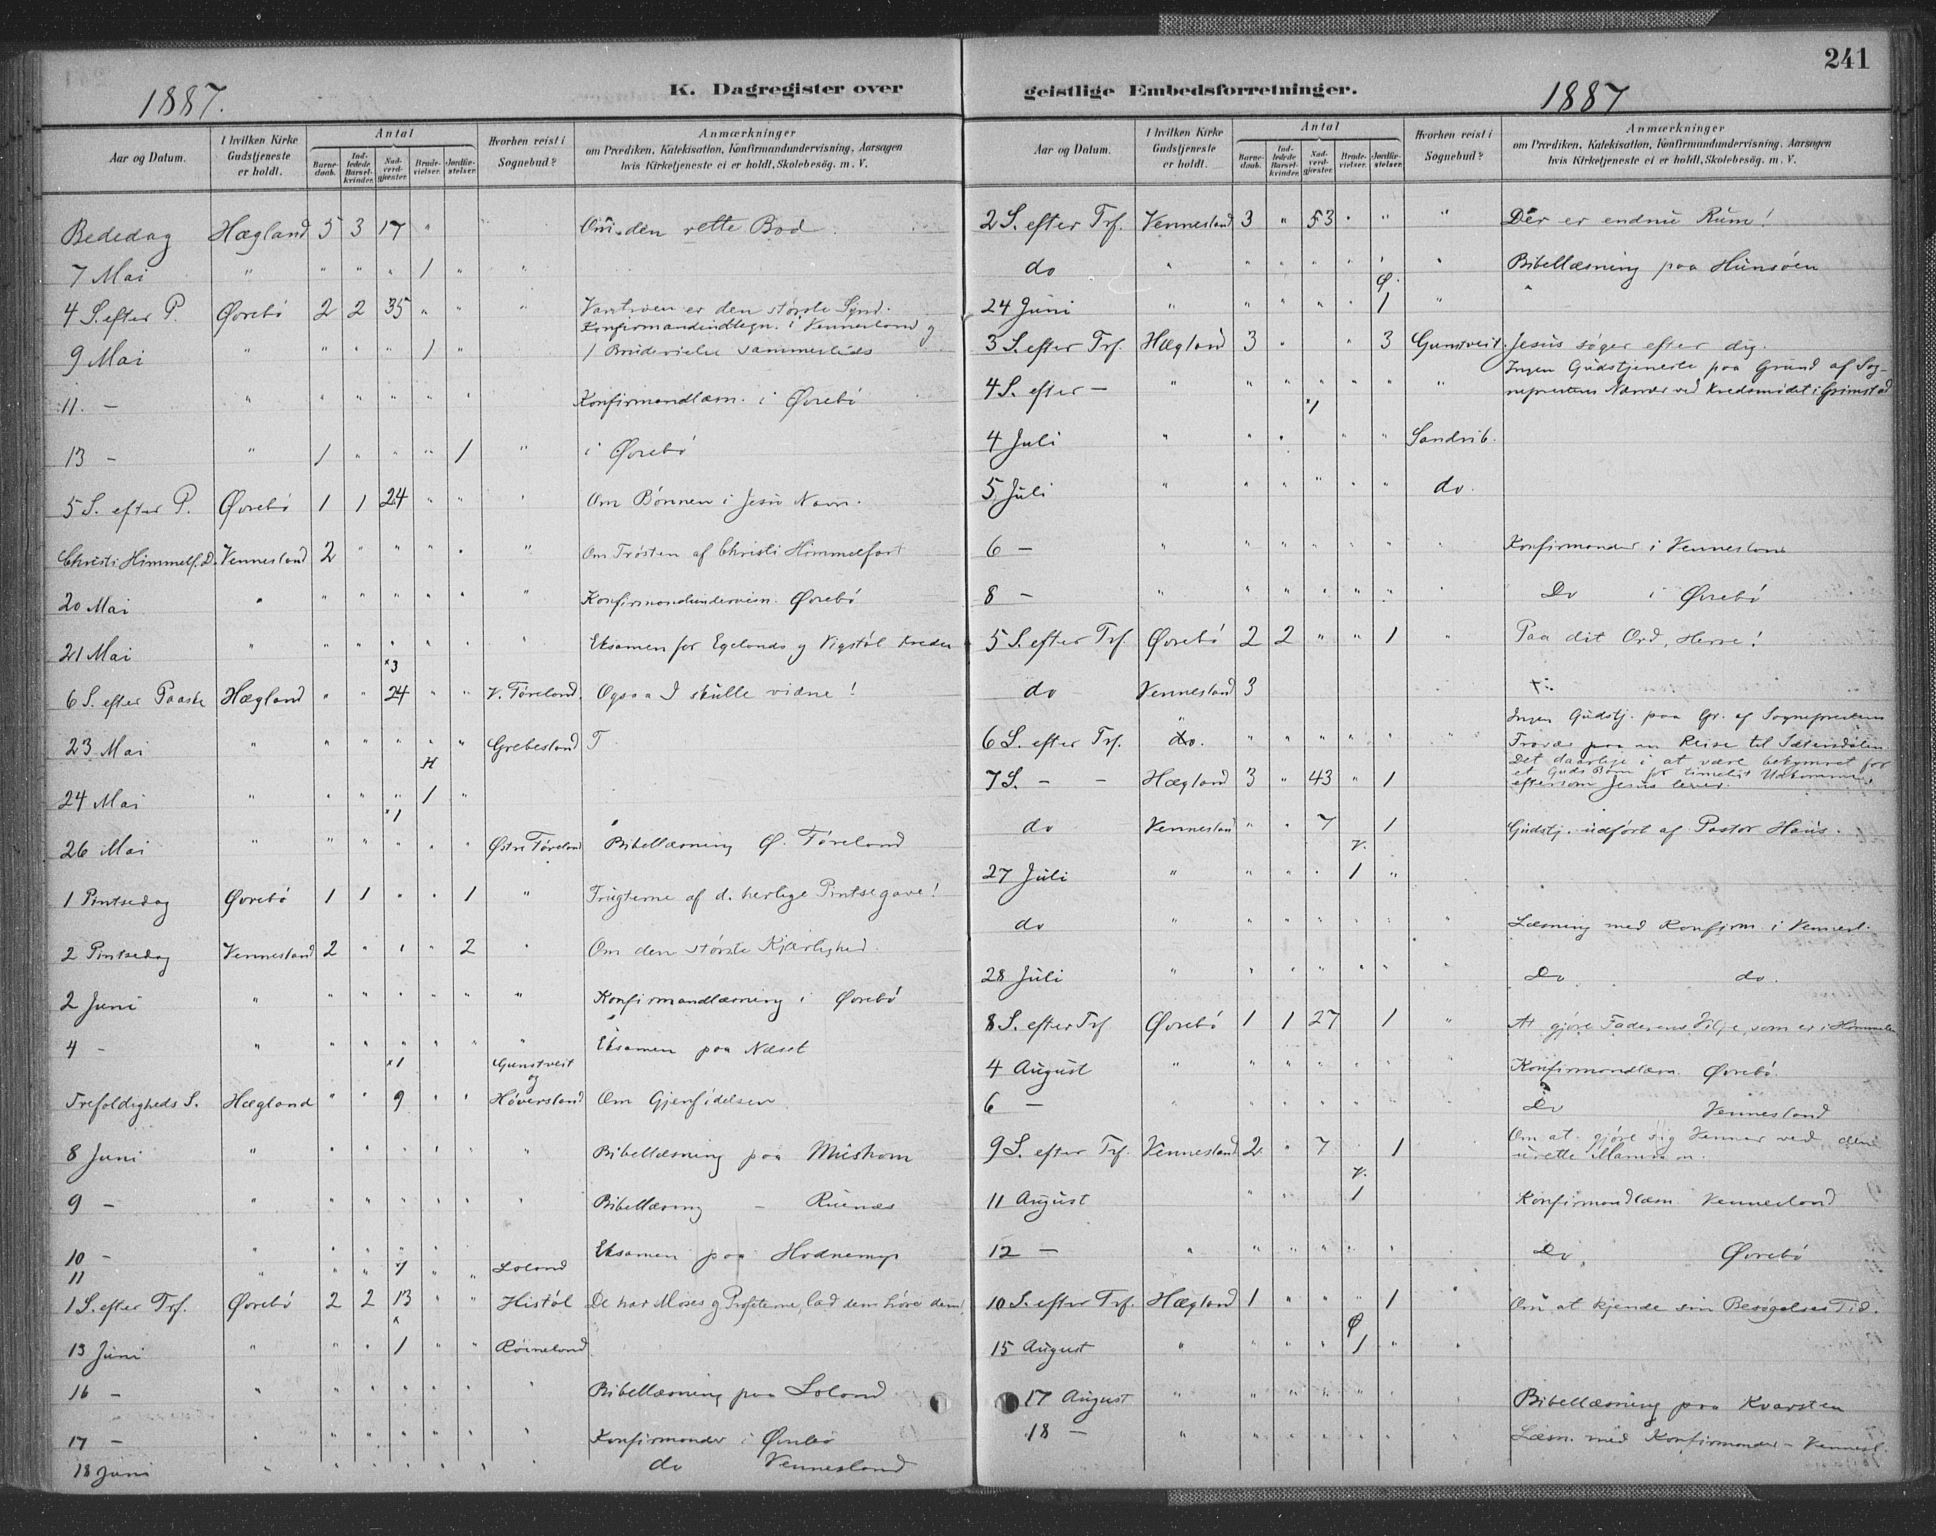 241
1887.
K. Dagregister over
Aar og Datum.
I hvilken Kirke Gudstjeneste er holdt.
Antal
Barne-daab.
Ind-ledede Barsel-kvinder.
Nad-verd-gjæster.
Brude-vielser.
Jordfæ-stelser.
Hvorhen reist i Sognebud?
Anmærkninger
om Prædiken, Katekisation, Konfirmandundervisning, Aarsagen
hvis Kirketjeneste ei er holdt, Skolebesög. m. V.
Bededag Hægland 5 3 17 " " Om den rette Bod
7 Mai " " " " 1 " "
4 S. efter P. Øvrebø 2 2 35 " " " Vantroen er den største Synd.
Konfirmandindtegn. i Vennesland og
9 Mai " " " " 1 " 1 Brudevielse sammesteds
11 - " " " " " " Konfirmandlæsn. i Øvrebø
13 - " 1 " " " 1 " i Øvrebø
5 S. efter P. Øvrebø 1 1 24 " " " Om Bønnen i Jesu Navn.
Christi Himmelf. D. Vennesland 2 " " " " " Om Trøsten af Christi Himmelfart
20 Mai " " " " " " " Konfirmandundervisn. Øvrebø
21 Mai " " " " " " " Eksamen for Egelands og Vigstøl Kredse
×3
6 S. efter Paaske Hægland " " 24 " " V. Føreland. Ogsaa I skulle vidne!
23 Mai " " " " " " Grebesland
H
24 Mai " " " " 1 "
×1
26 Mai " " " " " " Østre Føreland Bibellæsning Ø. Føreland
1 Pintsedag Øvrebø 1 1 " " 1 " Frugterne af d. herlige Pintsegave!
2 Pintsedag Vennesland 2 " " " 2 " Om den største Kjærlighed.
2 Juni " " " " " " " Konfirmandlæsning i Øvrebø
4 - " " " " " " " Eksamen paa Næset
×1 Gunstveit
og
Trefoldigheds S. Hægland " " 9 " " Høversland Om Gjenfødelsen
8 Juni " " " " " " " Bibellæsning paa Mushom
9 - " " " " " " " Bibellæsning - Ruenæs
10 - " " " " " Eksamen paa Hodnemyr
11 " " " ×1 " " Loland
1 S. efter Trf. Øvrebø 2 2 13 " " Histøl De har Moses og Profeterne, lad dem høre dem!
13 Juni " " " 1 " " Røineland
16 - " " " " " " " Bibellæsning paa Loland
17 - " " " " " " " Konfirmander i Øvrebø
18 Juni " " " " " " do Vennesland
geistlige Embedsforretninger.
1887
Aar og Datum.
I hvilken Kirke Gudstjeneste er holdt.
Antal
Barne-daab.
Ind-ledede Barsel-kvinder.
Nad-verd-gjæster.
Brude-vielser.
Jordfæ-stelser.
Hvorhen reist i Sognebud?
Anmærkninger
om Prædiken, Katekisation, Konfirmandundervisning, Aarsagen
hvis Kirketjeneste ei er holdt, Skolebesög. m. V.
2 S. efter Trf. Vennesland 3 " 53 " " " Der er endnu Rum!
do " " " " " " " Bibellæsning paa Hunsøen
Ø.
24 Juni " " " " " 1 "
3 S. efter Trf. Hægland 3 " " 3 Gunstveit. Jesus søger efter dig.
Ingen Gudstjeneste paa Grund af Sog-
4 S. efter - " " " " " " " neprestens Nærvær ved Kredsmødet i Grimstad
×1
4 Juli " " " " " Sandrib.
5 Juli " " " " " " do.
6 - " " " " " " " Konfirmander i Vennesland
8 - " " " " " " " Do i Øvrebø
5 S. efter Trf. Øvrebø 2 2 " " 1 " Paa dit Ord, Herre!
do Vennesland 3
Ingen Gudstj. paa Gr. af Sogneprestens
6 S. efter Trf. do. " " " " " " Fravær paa en Reise til Sætersdalen.
Det daarlige i at være bekymret for
7 S. - - Hægland 3 " 43 " 1 et Guds Barn for timeligt Udkomme,
eftersom Jesus lever.
do Vennesland " " 7 1 Gudstj. udført af Pastor Haus.
V.
27 Juli " " " " 1 "
do " " " " " " " Læsning med Konfirm. i Vennesl.
28 Juli " " " " " " " Do do.
8 S. efter Trf Øvrebø 1 1 27 1 " At gjøre Faderens Vilje, som er i Himmelen
4 August " " " " " " " Konfirmandlæsn. Øvrebø.
6 - " " " " " " Do Vennesland
9 S. efter Trf. Vennesland 2 " 7 1 Om at gjøre sig Venner ved den
urette Mammon.
V.
11 August " " 1 Konfirmandlæsn. Vennesland
12 - " " " " " " Do Øvrebø
10 S. efter Trf. Hægland 1 " " " 1 " Om at kjende sin Besøgelses Tid.
Ø
15 August " " " " 1 " "
17 August " " " " " " " Bibellæsning paa Kvarsten
18 - " " " " " " " Læsn. med Konfirmander - Vennesl.